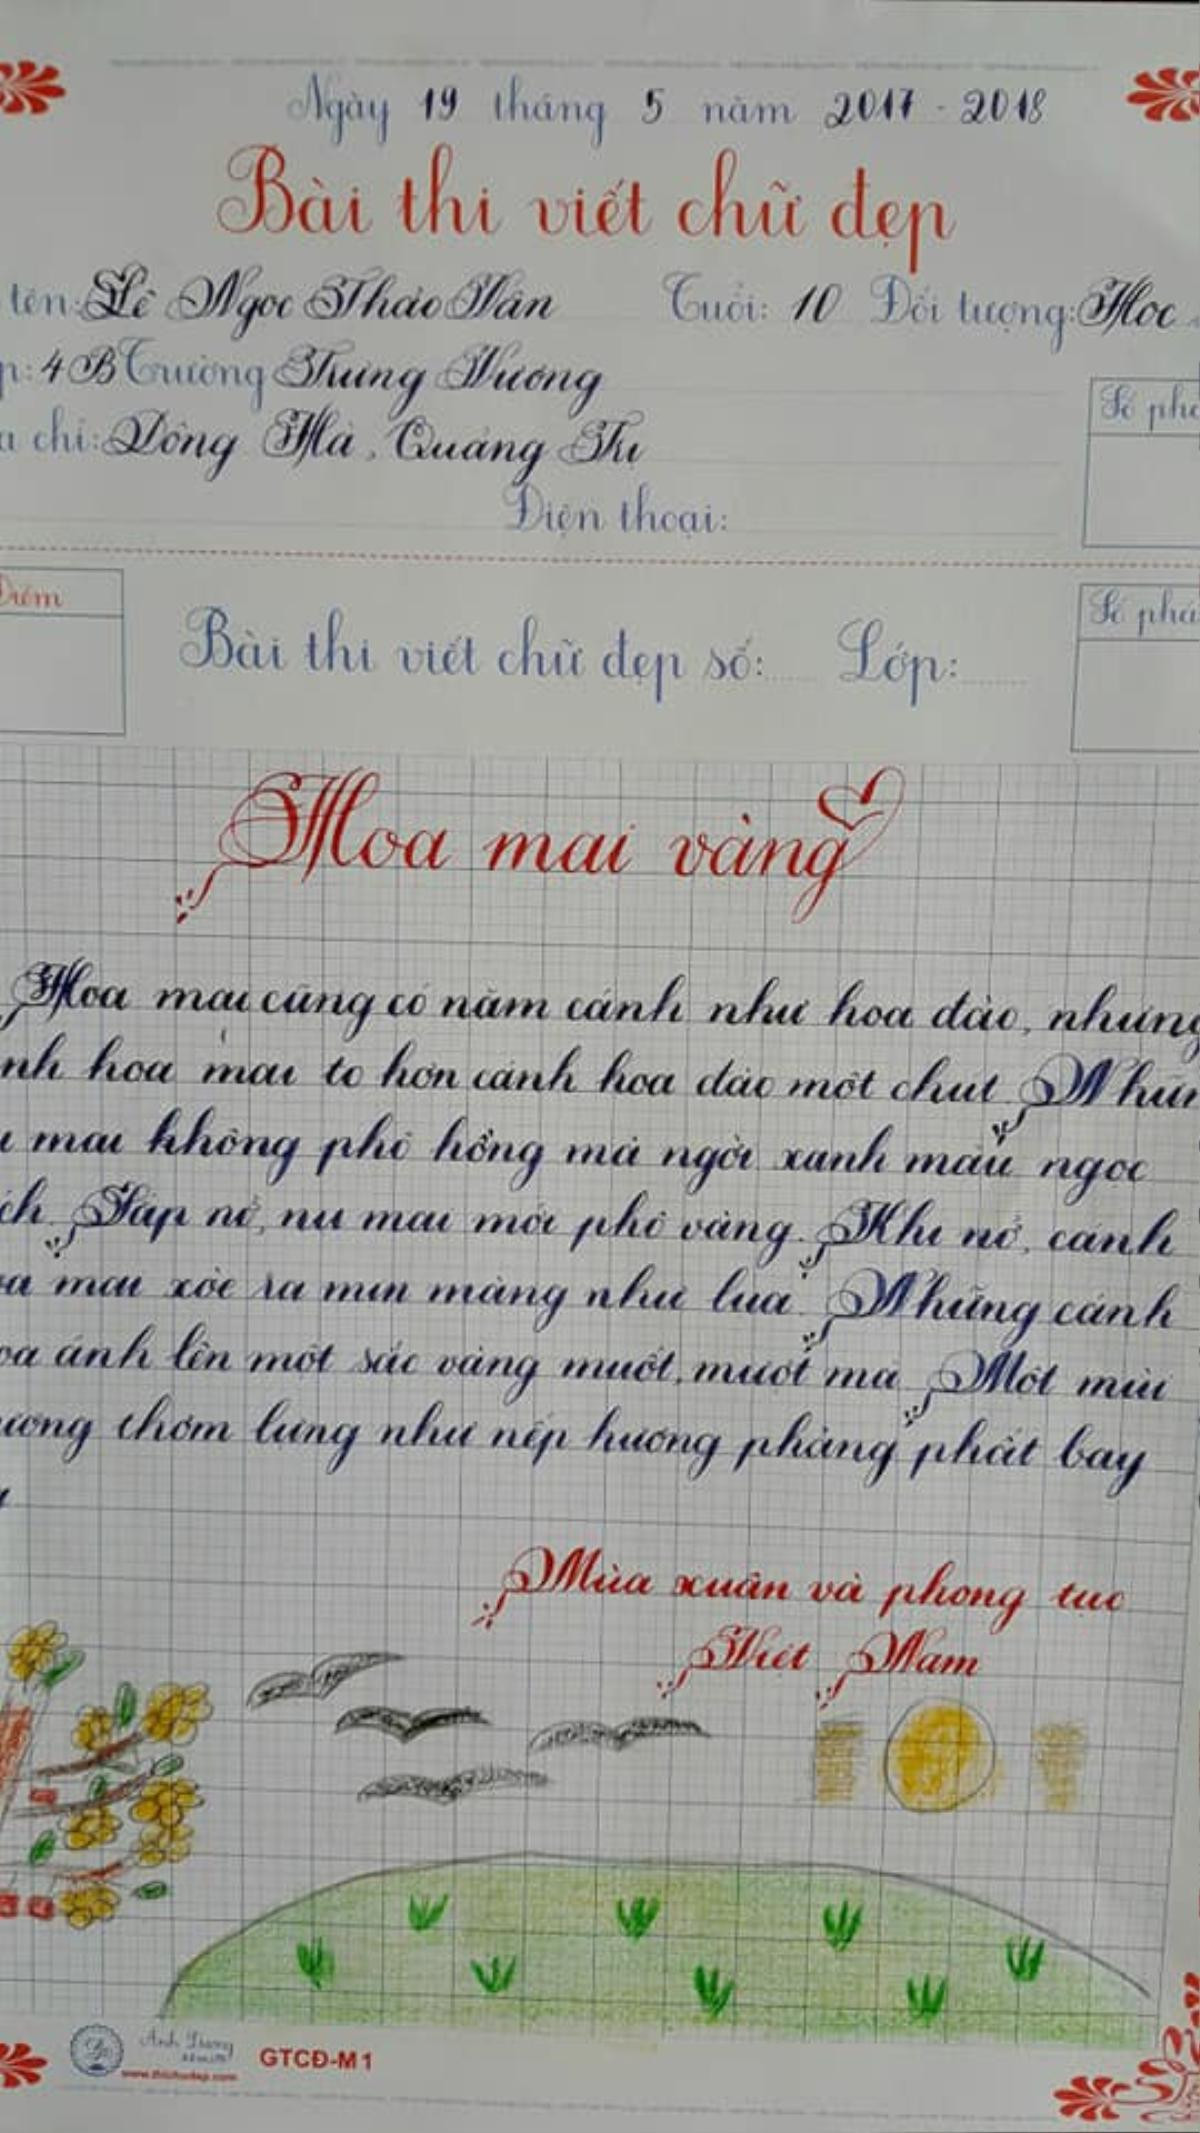 Ngày 19 tháng 5 năm 2017 - 2018
Bài thi viết chữ đẹp
tên: Lê Ngọc Thảo Vân Tuổi: 10 Đối tượng: Học
4B Trường Trưng Vương
chỉ: Đông Hà, Quảng Trị
Điện thoại:
Số phá
Điểm
Bài thi viết chữ đẹp số: Lớp:
Số phá
Hoa mai vàng
Hoa mai cũng có năm cánh như hoa đào, nhưng
nh hoa mai to hơn cánh hoa đào một chút. Nhữn
mai không phô hồng mà ngời xanh màu ngọc
ích. Sắp nở, nụ mai mới phô vàng. Khi nở, cánh
oa mai xòe ra mịn màng như lụa. Những cánh
oa ánh lên một sắc vàng muốt, mượt mà. Một mùi
ương thơm lựng như nếp hương phảng phất bay
Mùa xuân và phong tục
Việt Nam
Ánh Dương
www.thichudep.com
GTCĐ-M1